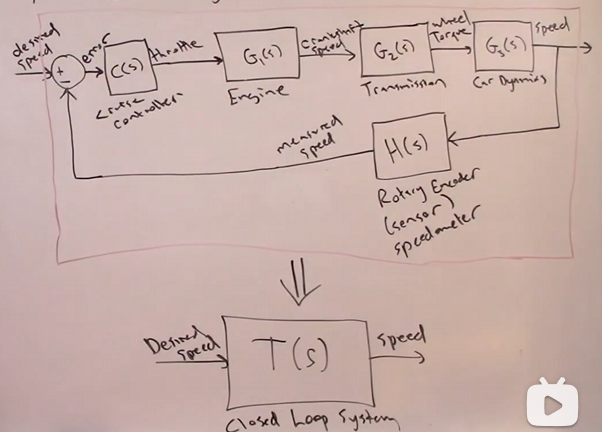 desired
speed
error
+
-
C(s)
cruise
controller
throttle
G₁(s)
Engine
crankshaft
speed
G₂(s)
Transmission
wheel
Torque
G₃(s)
Car Dynamics
speed
measured
speed
H(s)
Rotary Encoder
(sensor)
speedometer
Desired
speed
T(s)
speed
Closed Loop System